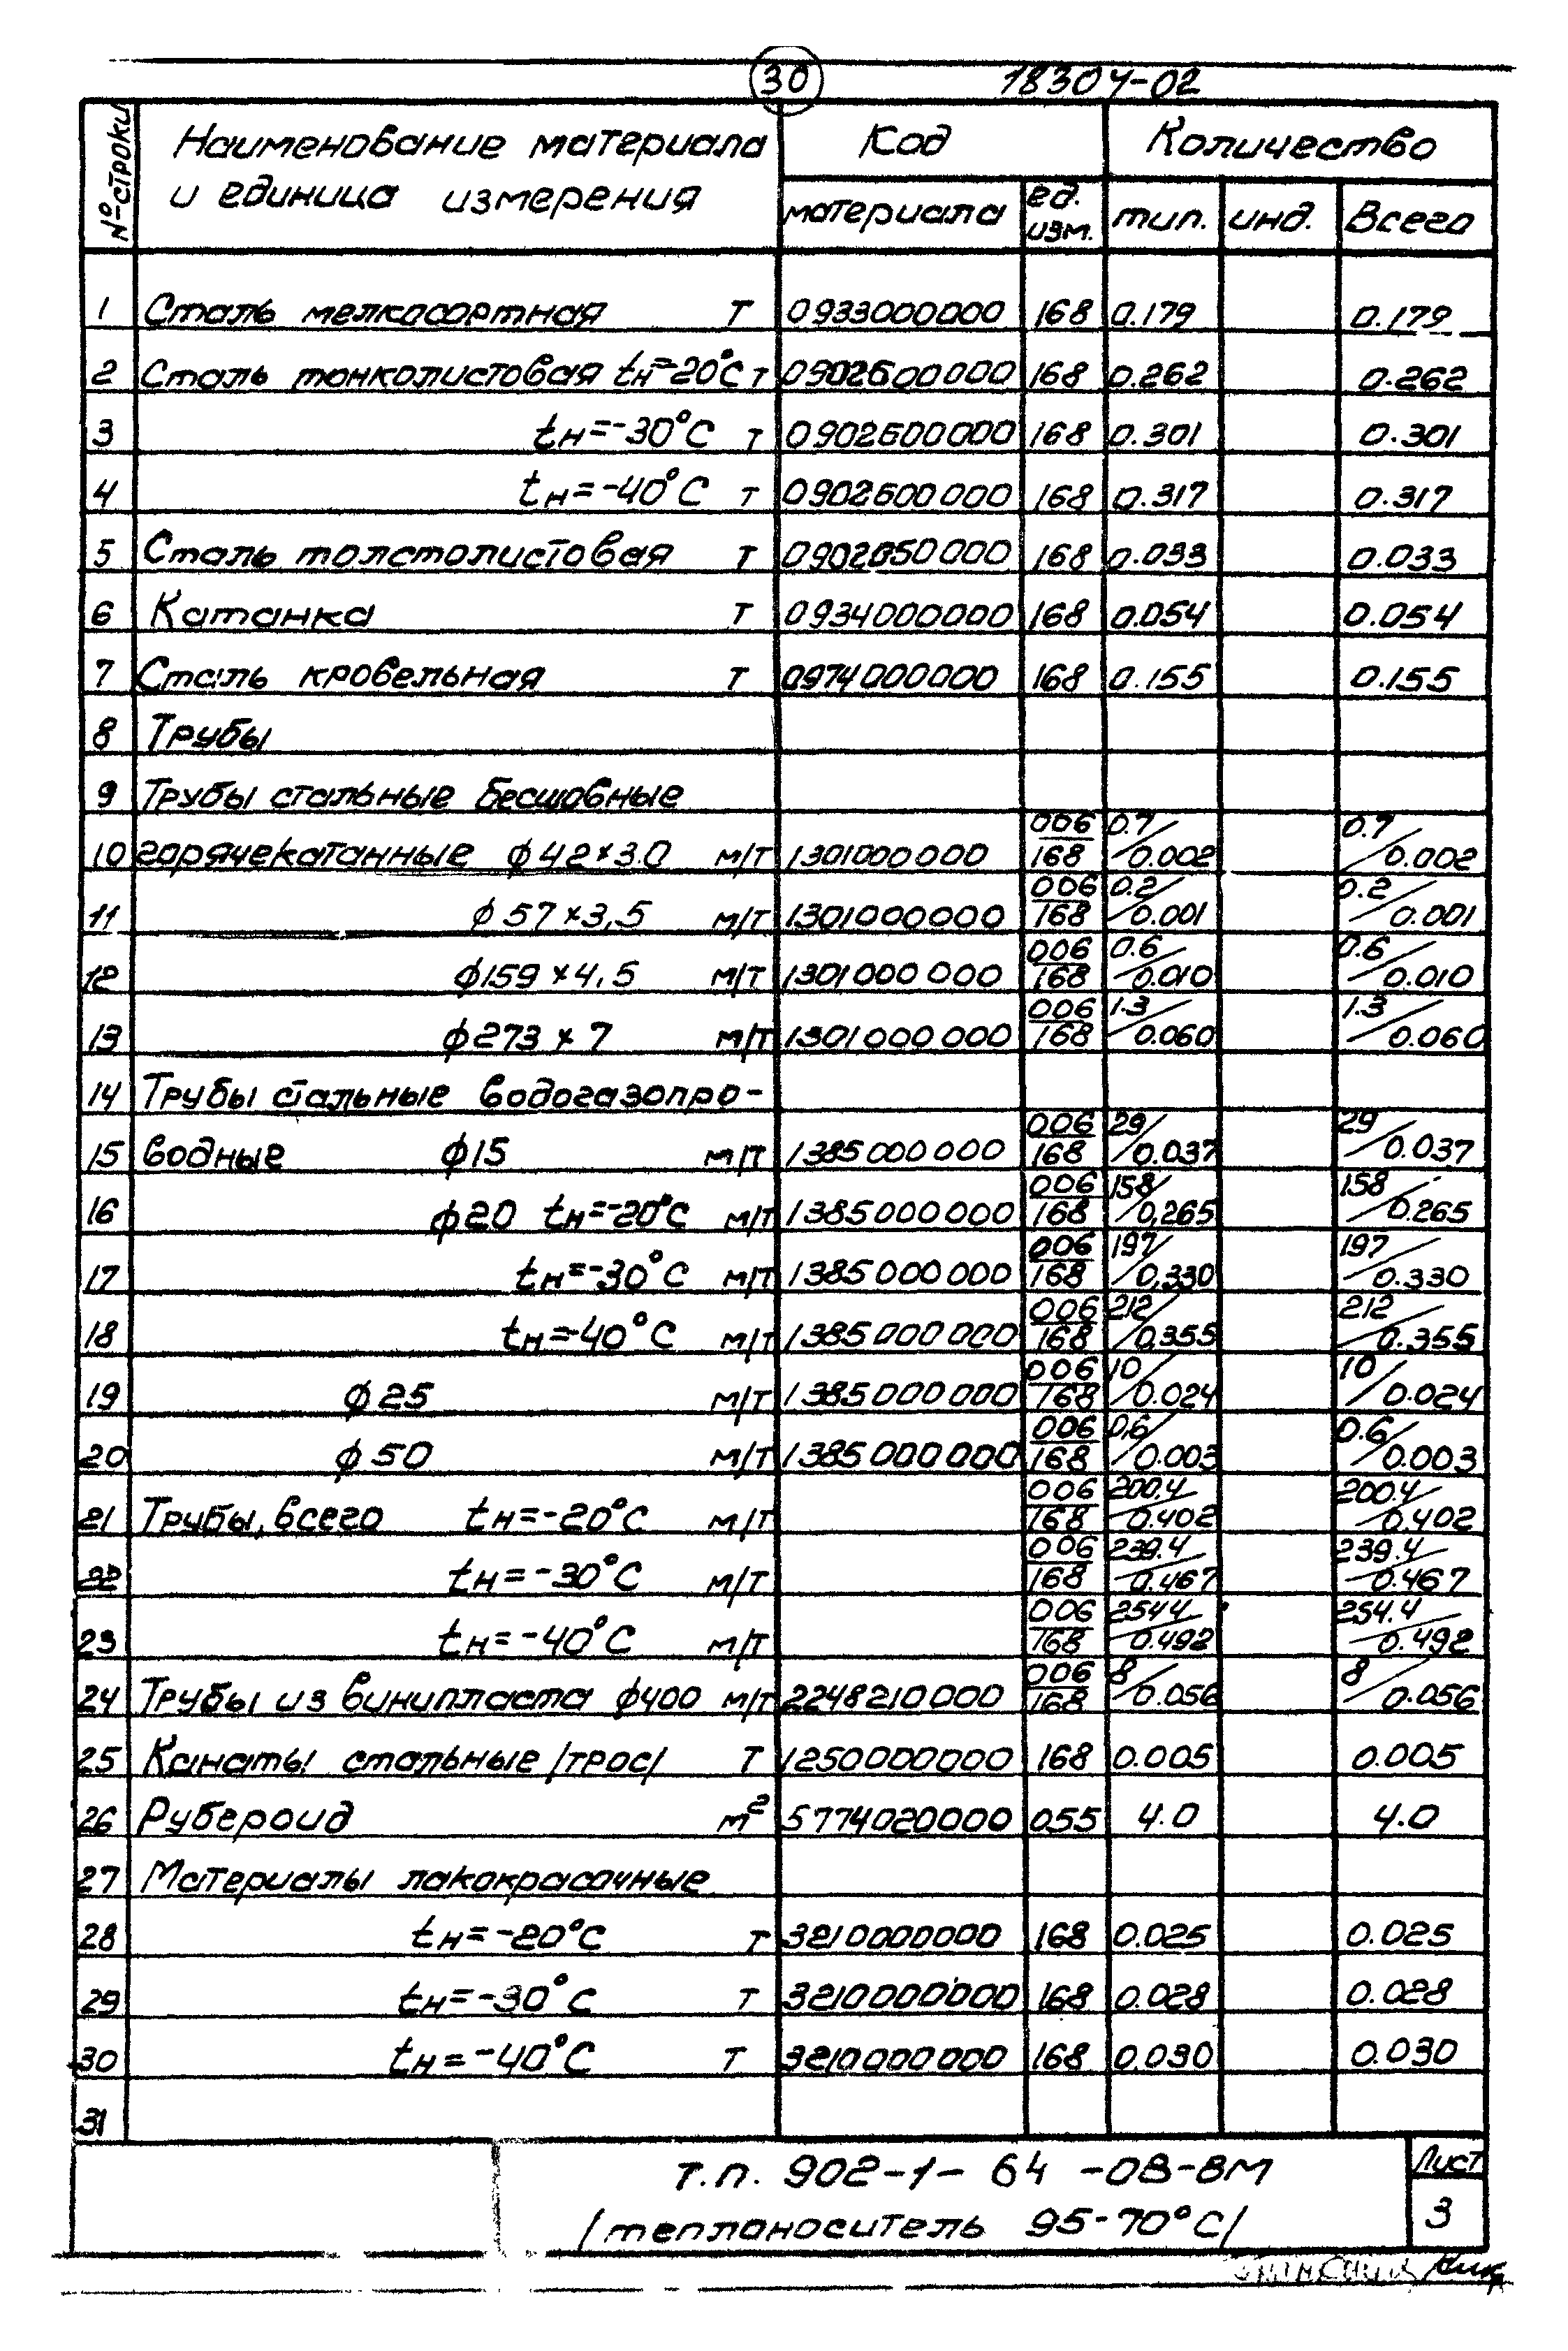 30 18304-02
№ строки Наименование материала и единица измерения Код Количество
материала ед. изм. тип. инд. Всего
1 Сталь мелкосортная т 0933000000 168 0.179 0.179
2 Сталь тонколистовая tн=-20°С т 0902600000 168 0.262 0.262
3 tн=-30°С т 0902600000 168 0.301 0.301
4 tн=-40°С т 0902600000 168 0.317 0.317
5 Сталь толстолистовая т 168 0.033 0.033
6 Катанка т 0934000000 168 0.054 0.054
7 Сталь кровельная т 0974000000 168 0.155 0.155
8 Трубы
9 Трубы стальные бесшовные
10 горячекатанные ф42×3.0 м/т 1301000000 006/168 0.7/0.002 0.7/0.002
11 ф57×3,5 м/т 1301000000 006/168 0.2/0.001 0.2/0.001
12 ф159×4,5 м/т 1301000000 006/168 0.6/0.010 0.6/0.010
13 ф273×7 м/т 1301000000 006/168 1.3/0.060 1.3/0.060
14 Трубы стальные водогазопро-
15 водные ф15 м/т 1385000000 006/168 29/0.037 29/0.037
16 ф20 tн=-20°С м/т 1385000000 006/168 158/0,265 158/0.265
17 tн=-30°С м/т 1385000000 006/168 197/0,330 197/0.330
18 tн=-40°С м/т 1385000000 006/168 212/0,355 212/0.355
19 ф25 м/т 1385000000 006/168 10/0.024 10/0.024
20 ф50 м/т 1385000000 006/168 0,6/0.003 0.6/0.003
21 Трубы, всего tн=-20°С м/т 006/168 200.4/0.402 200.4/0.402
22 tн=-30°С м/т 006/168 239.4/0.467 239.4/0.467
23 tн=-40°С м/т 006/168 254.4/0.492 254.4/0.492
24 Трубы из винипласта ф400 м/т 2248210000 006/168 8/0.056 8/0.056
25 Канаты стальные /трос/ т 1250000000 168 0.005 0.005
26 Рубероид м² 5774020000 055 4.0 4.0
27 Материалы лакокрасочные
28 tн=-20°С т 3210000000 168 0.025 0.025
29 tн=-30°С т 3210000000 168 0.028 0.028
30 tн=-40°С т 3210000000 168 0.030 0.030
31
т.п. 902-1-64-ОВ-ВМ Лист
/теплоноситель 95-70°С/ 3